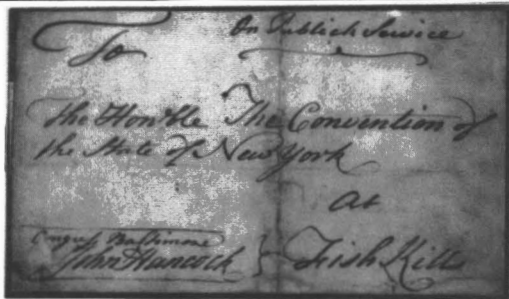 On Publick Service
To
the Honble The Convention of
the State of New York
At
Congress Baltimore
John Hancock } Fish Kill